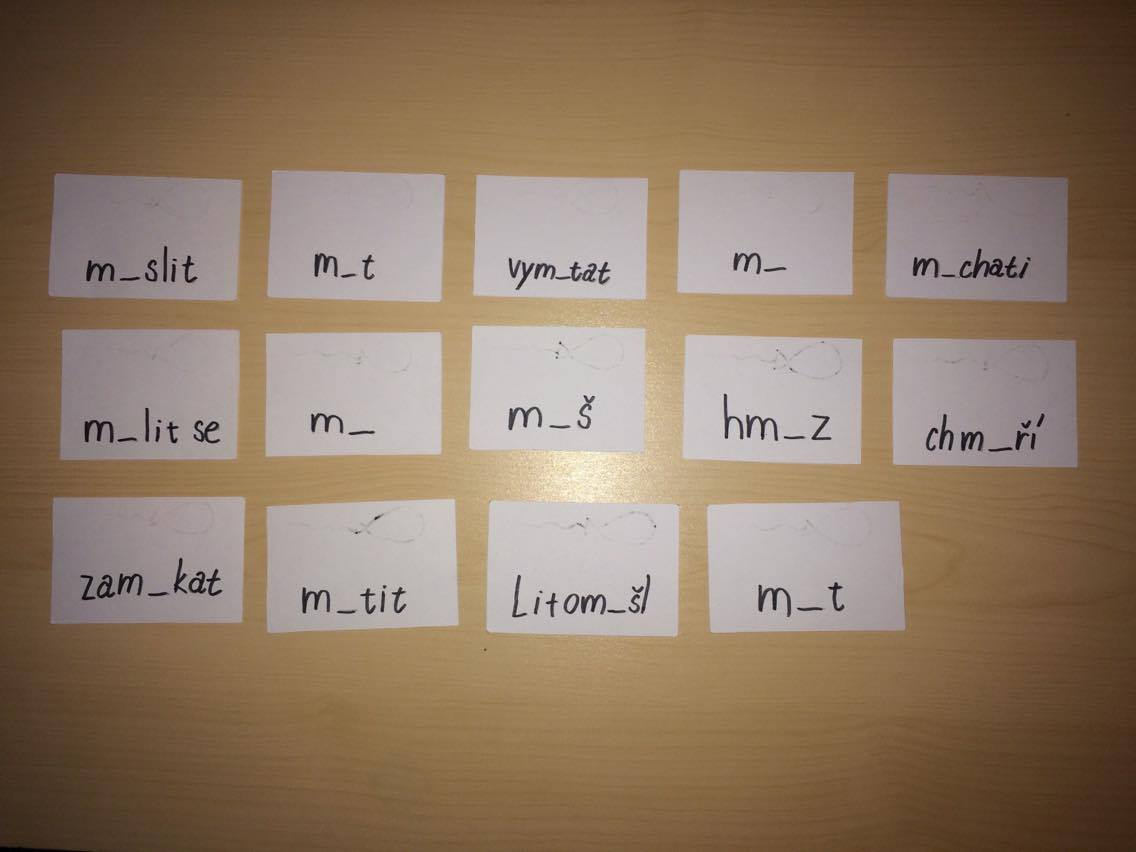 m_slit
m_t
vym_tat
m_
m_chati
m_lit se
m_
m_š
hm_z
chm_ří
zam_kat
m_tit
Litom_šl
m_t